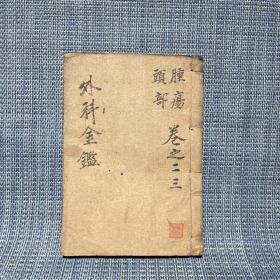 腫瘍
頭部
卷之二三
外科金鑑